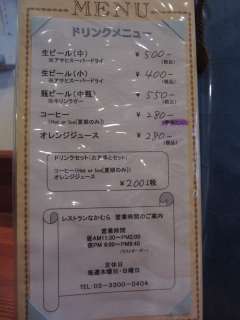 MENU
ドリンクメニュー
生ビール(中) ¥500-
※アサヒスーパードライ (税込)
生ビール(小) ¥400-
※アサヒスーパードライ (税込)
瓶ビール(中瓶) ¥550-
※キリンラガー (税込)
コーヒー ¥280-
(Hot or Ice[夏期のみ])
オレンジジュース ¥280-
(税込)
ドリンクセット(お食事とセット)
コーヒー(Hot or Ice[夏期のみ])
オレンジジュース
¥200
レストランなかむら 営業時間のご案内
営業時間
昼AM11:30～PM2:00
夜PM 5:00～PM8:40
(ラストオーダー)
定休日
毎週木曜日・日曜日
TEL:03-3300-0404